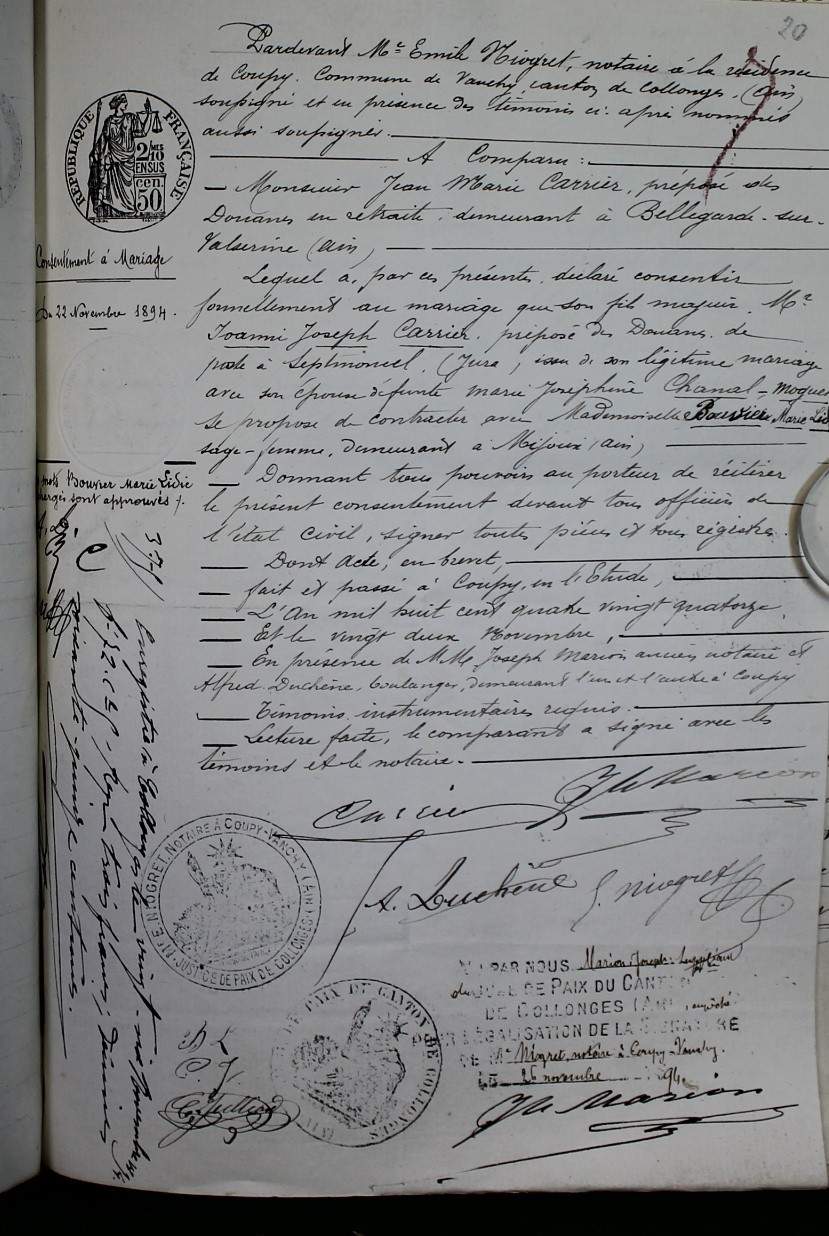 20
Pardevant Me Emile Niogret, notaire à la résidence
de Coupy. Commune de Vanchy, canton de Collonges, (Ain)
soussigné et en présence des témoins ci-après nommés
aussi soussignés.
A Comparu :
Monsieur Jean Marie Carrier, préposé des
Douanes en retraite, demeurant à Bellegarde-sur-
Valserine (Ain)
Lequel a, par ces présentes, déclaré consentir
formellement au mariage que son fils majeur, Mr
Joanni Joseph Carrier, préposé des Douanes, de
poste à Septmoncel, (Jura), issu de son légitime mariage
avec son épouse défunte Marie Joséphine Chanal-Moquet
se propose de contracter avec Mademoiselle Bouvier Marie Lid
sage-femme, demeurant à Mijoux (Ain)
Donnant tous pouvoirs au porteur de réitérer
le présent consentement devant tous officiers de
l'état civil, signer toutes pièces et tous registres.
Dont Acte, en brevet,
fait et passé à Coupy, en l'Etude,
L'An mil huit cent quatre vingt quatorze
Et le vingt deux Novembre,
En présence de MM. Joseph Marion ancien notaire et
Alfred Duchêne, boulanger, demeurant l'un et l'autre à Coupy
Témoins instrumentaires requis.
Lecture faite, le comparant a signé avec les
témoins et le notaire.
Carrier
Jh Marion
A. Duchêne
E. Niogret
RÉPUBLIQUE FRANÇAISE
2/10
EN SUS
50 cen.
Consentement à Mariage
Du 22 Novembre 1894.
mots Bouvier Marie Lidie
chargés sont approuvés
Enregistré à Collonges le vingt Novembre
Reçu trois francs, Décimes
soixante quinze centimes.
Me E. NIOGRET, NOTAIRE À COUPY-VANCHY (AIN)
JUSTICE DE PAIX DE COLLONGES
DE PAIX DU CANTON DE COLLONGES (AIN)
VU PAR NOUS Marion Joseph Suppléant
du JUGE DE PAIX DU CANTON
DE COLLONGES (AIN), empêché
POUR LÉGALISATION DE LA SIGNATURE
DE Me Niogret, notaire à Coupy-Vanchy.
LE 26 novembre 1894.
Jh Marion